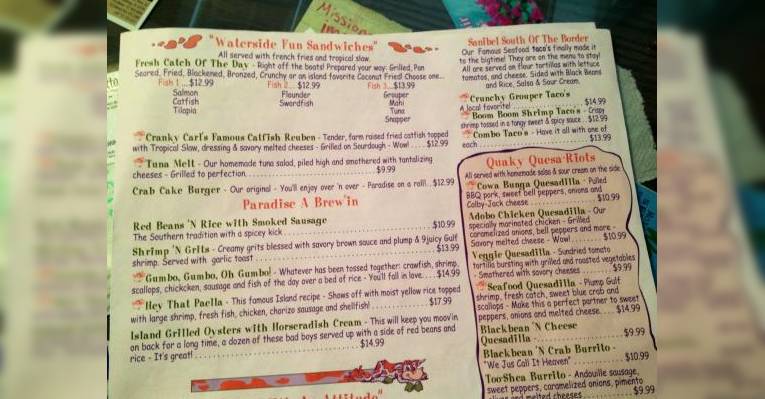 Mission
"Waterside Fun Sandwiches"
All served with french fries and tropical slaw.
Fresh Catch Of The Day - Right off the boats! Prepared your way: Grilled, Pan
Seared, Fried, Blackened, Bronzed, Crunchy or an island favorite Coconut Fried! Choose one...
Fish 1...$12.99 Fish 2...$12.99 Fish 3...$13.99
Salmon Flounder Grouper
Catfish Swordfish Mahi
Tilapia Tuna
Snapper
Cranky Carl's Famous Catfish Reuben - Tender, farm raised fried catfish topped
with Tropical Slaw, dressing & savory melted cheeses - Grilled on Sourdough - Wow! .... $12.99
Tuna Melt - Our homemade tuna salad, piled high and smothered with tantalizing
cheeses - Grilled to perfection. $9.99
Crab Cake Burger - Our original - You'll enjoy over 'n over - Paradise on a roll!.. $12.99
Paradise A Brew'in
Red Beans 'N Rice with Smoked Sausage
The Southern tradition with a spicey kick $10.99
Shrimp 'N Grits - Creamy grits blessed with savory brown sauce and plump & 9juicy Gulf
shrimp. Served with garlic toast $13.99
Gumbo, Gumbo, Oh Gumbo! - Whatever has been tossed together: crawfish, shrimp,
scallops, chickcken, sausage and fish of the day over a bed of rice - You'll fall in love.... $14.99
Hey That Paella - This famous Island recipe - Shows off with moist yellow rice topped
with large shrimp, fresh fish, chicken, chorizo sausage and shellfish! $17.99
Island Grilled Oysters with Horseradish Cream - This will keep you moov'in
on back for a long time, a dozen of these bad boys served up with a side of red beans and
rice - It's great! $14.99
Attitude"
Sanibel South Of The Border
Our Famous Seafood taco's finally made it
to the bigtime! They are on the menu to stay!
All are served on flour tortillas with lettuce
tomatos, and cheese. Sided with Black Beans
and Rice, Salsa & Sour Cream.
Crunchy Grouper Taco's
A local favorite! $14.99
Boom Boom Shrimp Taco's - Crispy
shrimp tossed in a tangy sweet & spicy sauce . $12.99
Combo Taco's - Have it all with one of
each $13.99
Quaky Quesa-Riots
All served with homemade salsa & sour cream on the side
Cowa Bunga Quesadilla - Pulled
BBQ pork, sweet bell peppers, onions and
Colby-Jack cheese $10.99
Adobo Chicken Quesadilla - Our
specially marinated chicken - Grilled
caramelized onions, bell peppers and more -
Savory melted cheese - Wow! $10.99
Veggie Quesadilla - Sundried tomato
tortilla bursting with grilled and roasted vegetables
- Smothered with savory cheeses $9.99
Seafood Quesadilla - Plump Gulf
shrimp, fresh catch, sweet blue crab and
scallops - Make this a perfect partner to sweet
peppers, onions and melted cheese.... $14.99
Blackbean 'N Cheese
Quesadilla $9.99
Blackbean 'N Crab Burrito -
"We Jus Call It Heaven" $10.99
Too-Shea Burrito - Andouille sausage,
sweet peppers, caramelized onions, pimento
and melted cheeses $9.99